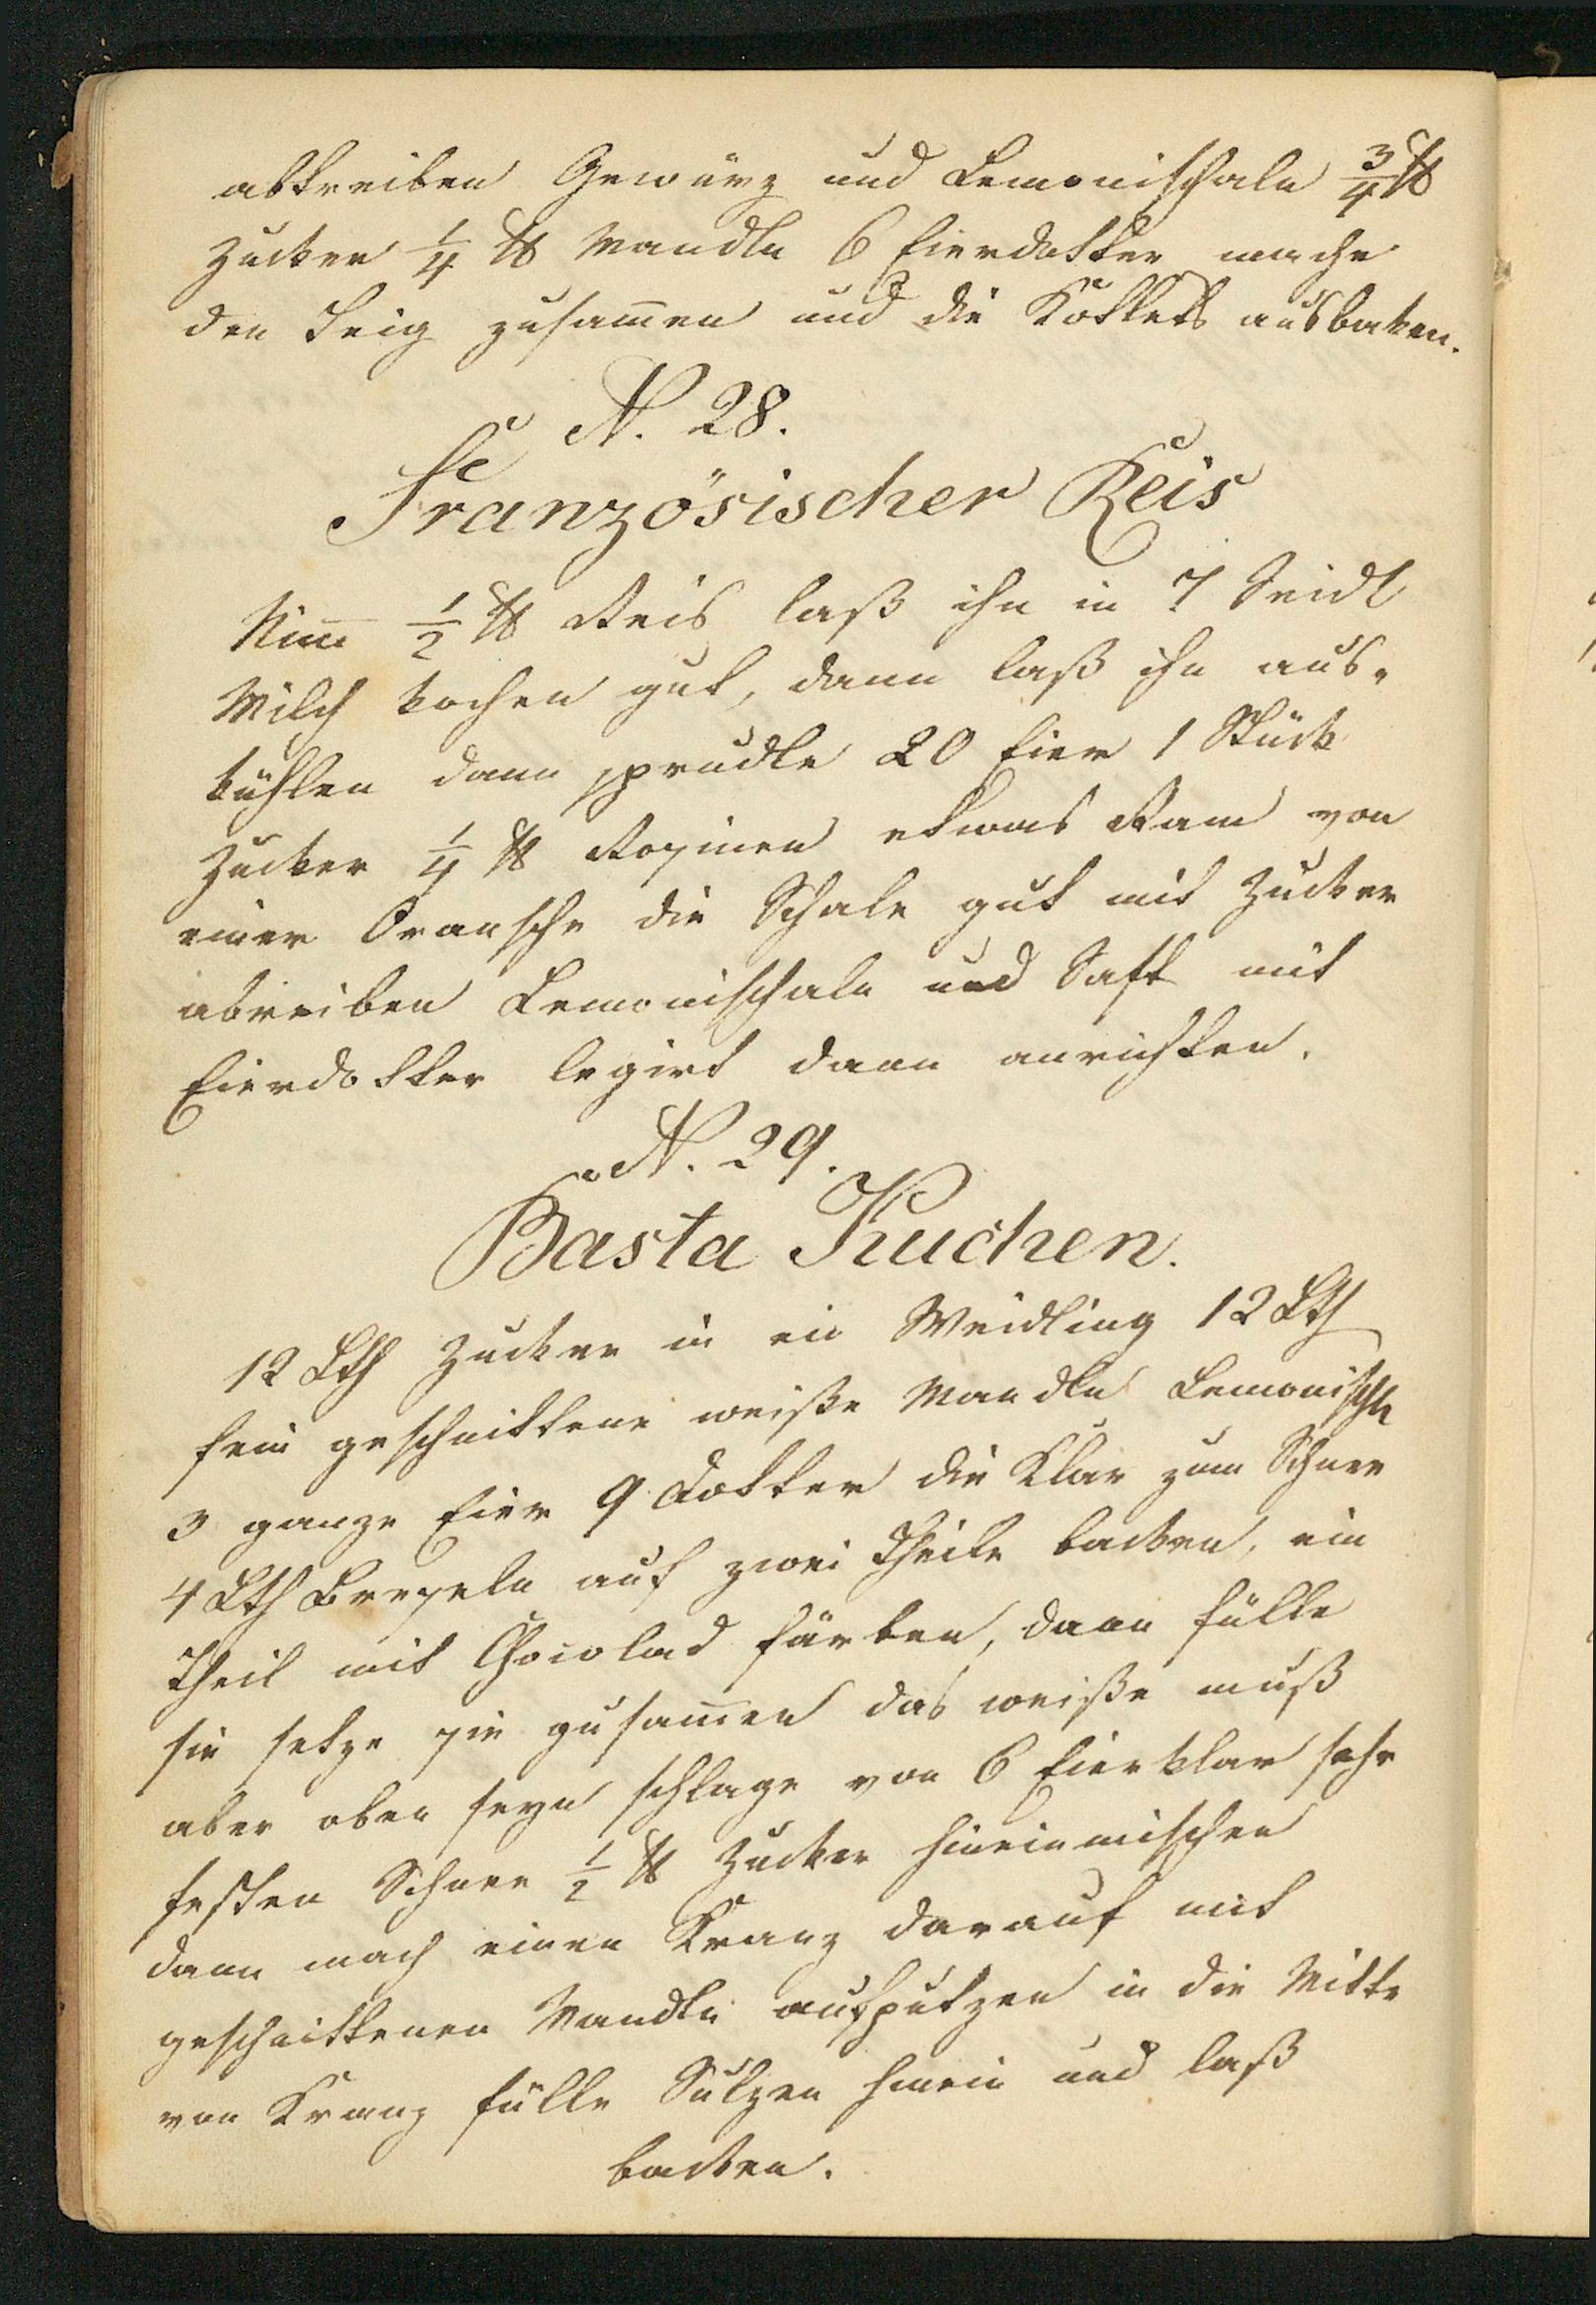 abtreiben Gewürz und Lemonischale 3/4 ℔
Zucker 1/4 ℔ Mandln 6 Eierdotter mache
den Teig zusam̅en und die Kottlets ausbaken.
N. 28.
Französischer Reis
Nim̅ 1/2 ℔ Reis laß ihn in 7 Seidl
Milch kochen gut, dann laß ihn aus-
kühlen dann sprudle 20 Eier 1 Stück
Zucker 1/4 ℔ Rosinen etwas Ram von
einer Oransche die Schale gut mit Zucker
abreiben Lemonischale und Saft mit
Eierdotter legirt dann anrichten.
N. 29.
Basta Kuchen.
12 Lth Zucker in ein Weidling 12 Lth
fein geschnittene weiße Mandln Lemonischle
3 ganze Eier 9 Dotter die Klar zum Schnee
4 Lth Breseln auf zwei Theile backen, ein
Theil mit Chocolad färben, dann fülle
sie setze sie zusam̅en das weiße muß
aber oben seyn schlage von 6 Eierklar sehr
festen Schnee 1/2 ℔ Zucker hineinmischen
dann mach einen Kranz darauf mit
geschnittenen Mandln aufputzen in die Mitte
von Kranz fülle Sulzen hinein und laß
backen.